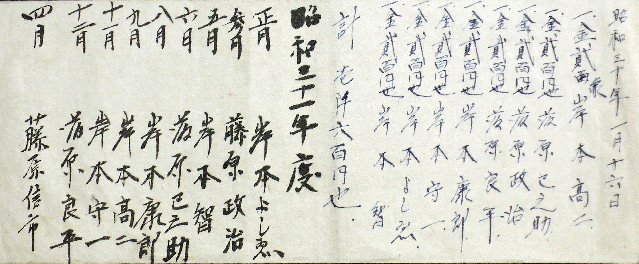 昭和三十年一月十六日
一、金貳百円也 岸本高二
一、金貳百円也 藤原已之助
一、金貳百円也 藤原政治
一、金貳百円也 藤原良平
一、金貳百円也 岸本康郎
一、金貳百円也 岸本守一
一、金貳百円也 岸本よし恵
一、金貳百円也 岸本智
計 壱阡六百円也
昭和三十一年度
正月 岸本よし恵
参月 藤原政治
五月 岸本智
六月 藤原已之助
八月 岸本康郎
九月 岸本高二
十月 岸本守一
十二月 藤原良平
四月 藤原信市